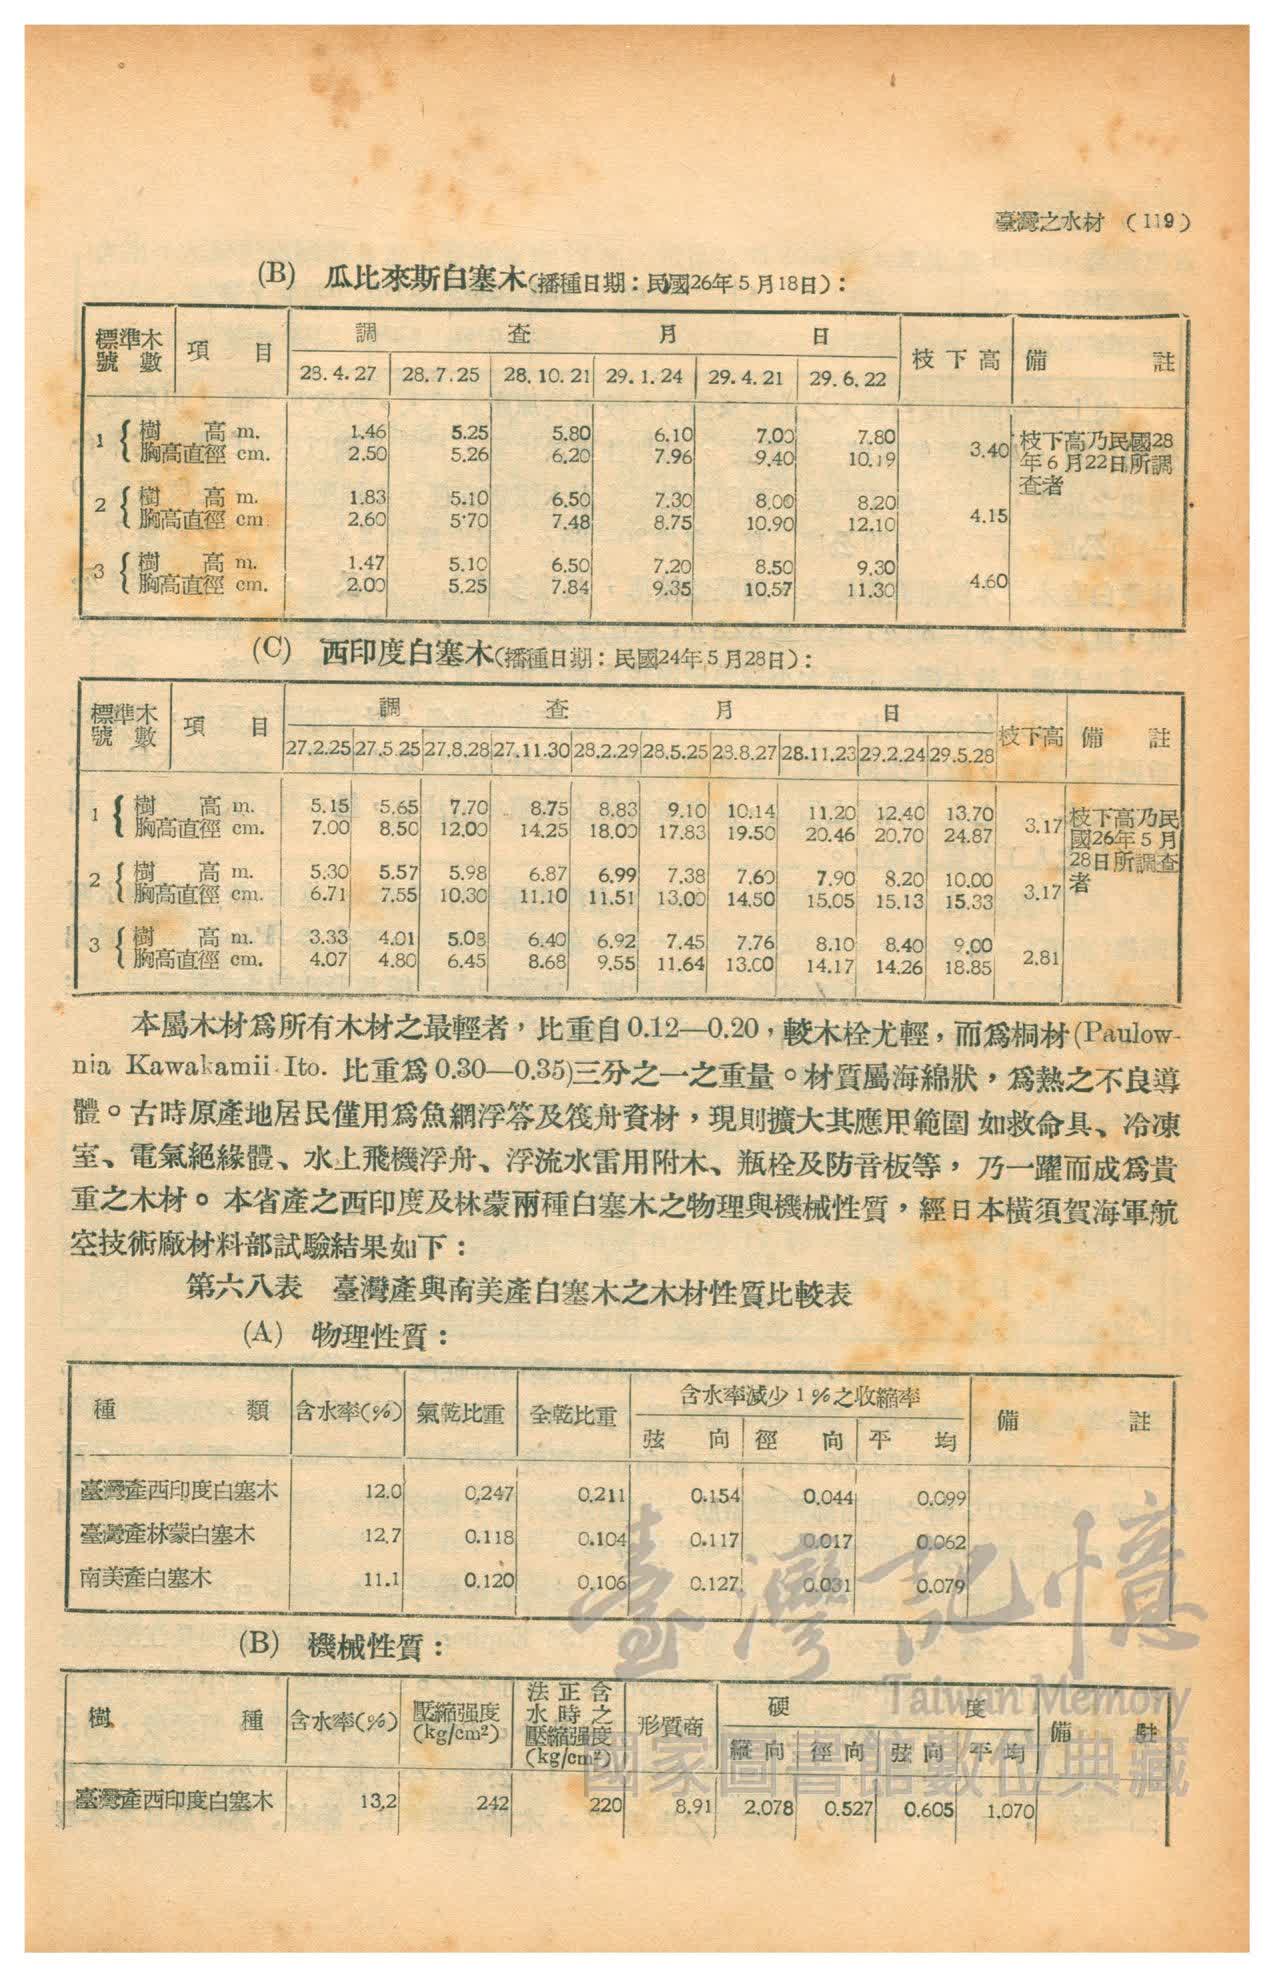 臺灣之木材 (119)
(B) 瓜比來斯白塞木(播種日期：民國26年5月18日)：
標準木號數 項目 調查月日 枝下高 備註
28.4.27 28.7.25 28.10.21 29.1.24 29.4.21 29.6.22
1 樹高 m. 1.46 5.25 5.80 6.10 7.00 7.80
胸高直徑 cm. 2.50 5.26 6.20 7.96 9.40 10.19 3.40 枝下高乃民國28年6月22日所調查者
2 樹高 m. 1.83 5.10 6.50 7.30 8.00 8.20
胸高直徑 cm 2.60 5.70 7.48 8.75 10.90 12.10 4.15
3 樹高 m. 1.47 5.10 6.50 7.20 8.50 9.30
胸高直徑 cm. 2.00 5.25 7.84 9.35 10.57 11.30 4.60
(C) 西印度白塞木(播種日期：民國24年5月28日)：
標準木號數 項目 調查月日 枝下高 備註
27.2.25 27.5.25 27.8.28 27.11.30 28.2.29 28.5.25 28.8.27 28.11.23 29.2.24 29.5.28
1 樹高 m. 5.15 5.65 7.70 8.75 8.83 9.10 10.14 11.20 12.40 13.70
胸高直徑 cm. 7.00 8.50 12.00 14.25 18.00 17.83 19.50 20.46 20.70 24.87 3.17 枝下高乃民國26年5月28日所調查者
2 樹高 m. 5.30 5.57 5.98 6.87 6.99 7.38 7.60 7.90 8.20 10.00
胸高直徑 cm. 6.71 7.55 10.30 11.10 11.51 13.00 14.50 15.05 15.13 15.33 3.17
3 樹高 m. 3.33 4.01 5.08 6.40 6.92 7.45 7.76 8.10 8.40 9.00
胸高直徑 cm. 4.07 4.80 6.45 8.68 9.55 11.64 13.00 14.17 14.26 18.85 2.81
本屬木材爲所有木材之最輕者，比重自0.12—0.20，較木栓尤輕，而爲桐材(Paulow-
nia Kawakamii Ito. 比重爲0.30—0.35)三分之一之重量。材質屬海綿狀，爲熱之不良導
體。古時原產地居民僅用爲魚網浮筞及筏舟資材，現則擴大其應用範圍 如救命具、冷凍
室、電氣絕緣體、水上飛機浮舟、浮流水雷用附木、瓶栓及防音板等， 乃一躍而成爲貴
重之木材。本省產之西印度及林蒙兩種白塞木之物理與機械性質，經日本橫須賀海軍航
空技術廠材料部試驗結果如下：
第六八表 臺灣產與南美產白塞木之木材性質比較表
(A) 物理性質：
種類 含水率(%) 氣乾比重 全乾比重 含水率減少1%之收縮率 備註
弦向 徑向 平均
臺灣產西印度白塞木 12.0 0.247 0.211 0.154 0.044 0.099
臺灣產林蒙白塞木 12.7 0.118 0.104 0.117 0.017 0.062
南美產白塞木 11.1 0.120 0.106 0.127 0.031 0.079
(B) 機械性質：
樹種 含水率(%) 壓縮强度(kg/cm²) 法正含水時之壓縮强度(kg/cm²) 形質商 硬度 備註
縱向 徑向 弦向 平均
臺灣產西印度白塞木 13.2 242 220 8.91 2.078 0.527 0.605 1.070
臺灣記憶
Taiwan Memory
國家圖書館數位典藏